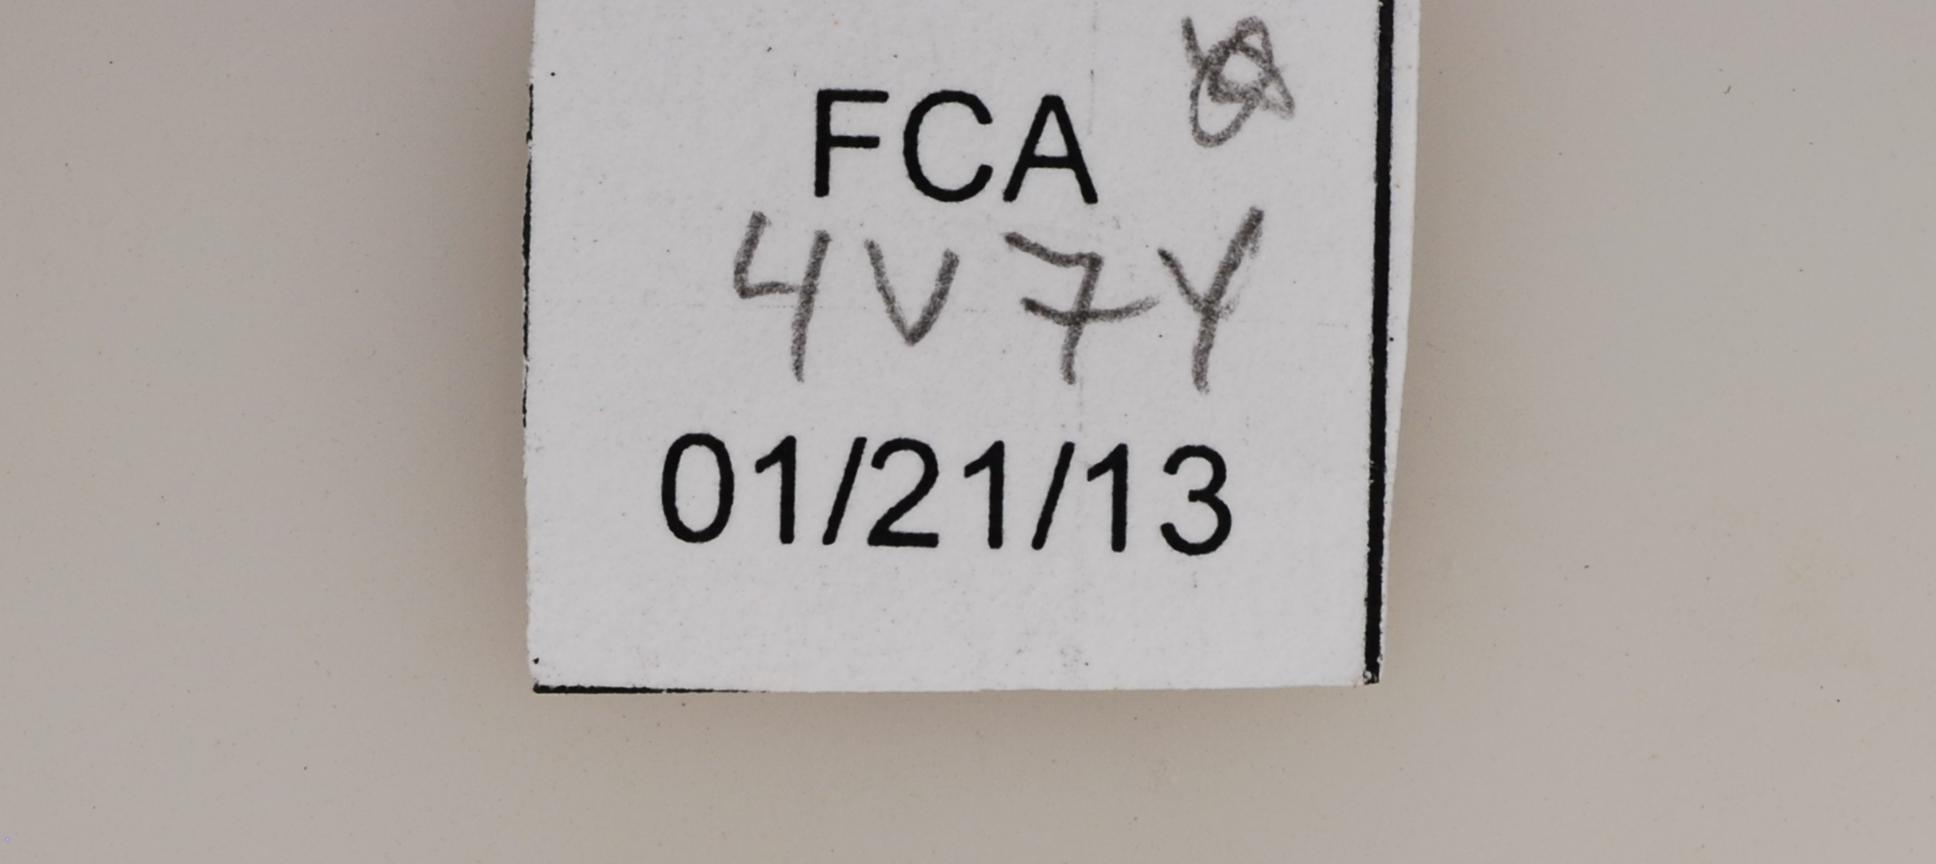 FCA
4V7Y
01/21/13